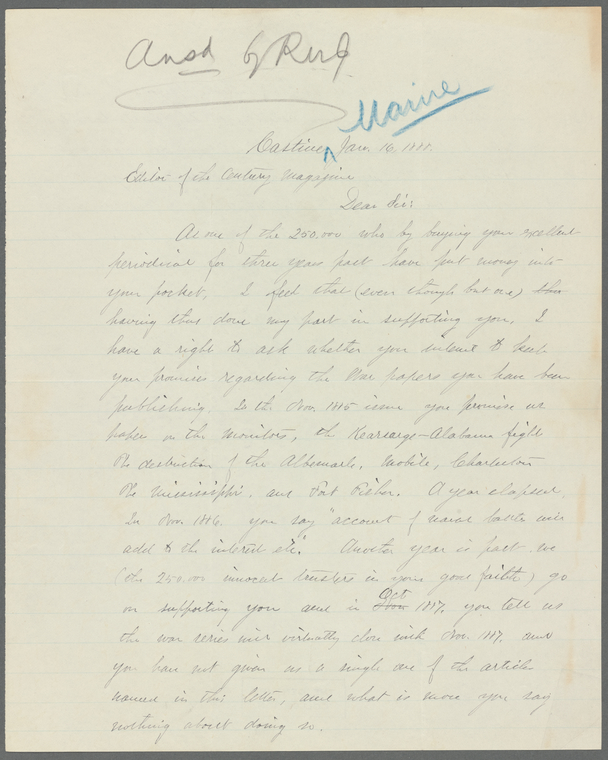 Ansd by
Maine
Castine ^ Jan. 16, 1888.
Editor of the Century Magazine
Dear Sir:
As one of the 250,000 who by buying your excellent
periodical for three years past have put money into
your pocket, I feel that (even though but one)
having thus done my part in supporting you, I
have a right to ask whether you intend to keep
your promises regarding the War papers you have been
publishing. In the Nov. 1885 issue you promise us
papers on the Monitors, the Kearsarge-Alabama fight
The destruction of the Albemarle, Mobile, Charleston
The Mississippi, and Fort Fisher. A year elapses,
In Nov. 1886. you say "account of naval battles will
add to the interest etc." Another year is past we
(the 250,000 innocent trusters in your good faith) go
on supporting you and in Nov Oct 1887, you tell us
the war series will virtually close with Nov. 1887. and
you have not given us a single one of the articles
named in this letter, and what is more you say
nothing about doing so.